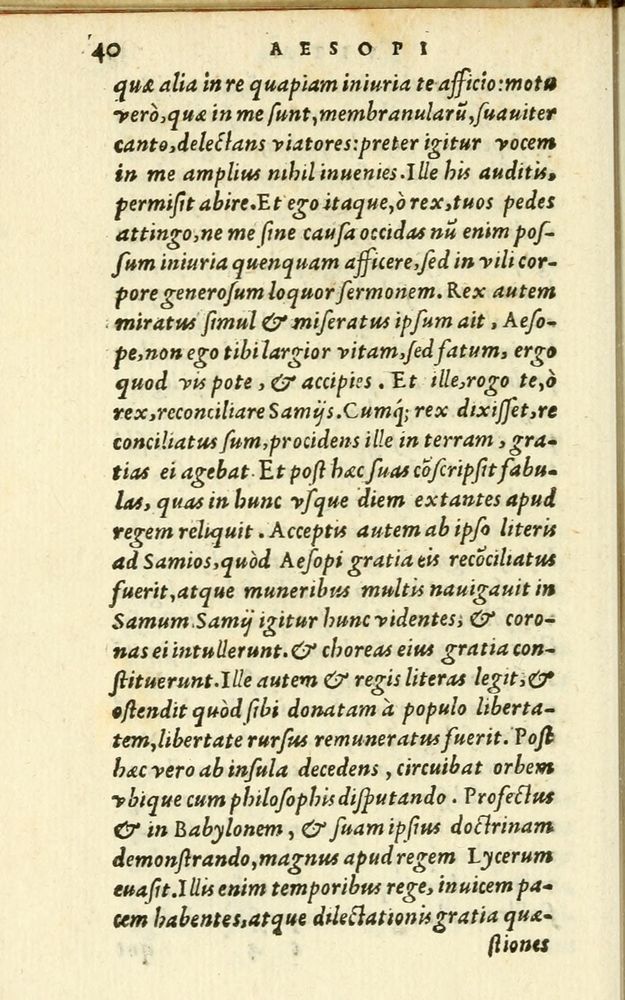 40 AESOPI
quæ alia in re quapiam iniuria te afficio:motu
verò,quæ in me ſunt,membranularũ,ſuauiter
canto,delectans viatores:preter igitur vocem
in me amplius nihil inuenies.Ille his auditis,
permiſit abire.Et ego itaque,ò rex,tuos pedes
attingo,ne me ſine cauſa occidas nũ enim poſ-
ſum iniuria quenquam afficere,ſed in vili cor-
pore generoſum loquor ſermonem. Rex autem
miratus ſimul & miſeratus ipſum ait, Aeſo-
pe,non ego tibi largior vitam,ſed fatum, ergo
quod vis pete, & accipies. Et ille,rogo te,ò
rex,reconciliare Samijs.Cumq́; rex dixiſſet,re
conciliatus ſum,procidens ille in terram, gra-
tias ei agebat. Et poſt hæc ſuas cõſcripſit fabu-
las, quas in hunc vſque diem extantes apud
regem reliquit. Acceptis autem ab ipſo literis
ad Samios,quòd Aeſopi gratia eis recõciliatus
fuerit,atque muneribus multis nauigauit in
Samum.Samij igitur hunc videntes, & coro-
nas ei intullerunt.& choreas eius gratia con-
ſtituerunt.Ille autem & regis literas legit,&
oſtendit quòd ſibi donatam à populo liberta-
tem,libertate rurſus remuneratus fuerit. Poſt
hæc vero ab inſula decedens, circuibat orbem
vbique cum philoſophis diſputando. Profectus
& in Babylonem, & ſuam ipſius doctrinam
demonſtrando,magnus apud regem Lycerum
euaſit.Illis enim temporibus rege, inuicem pa-
cem habentes,atque dilectationis gratia quæ-
ſtiones